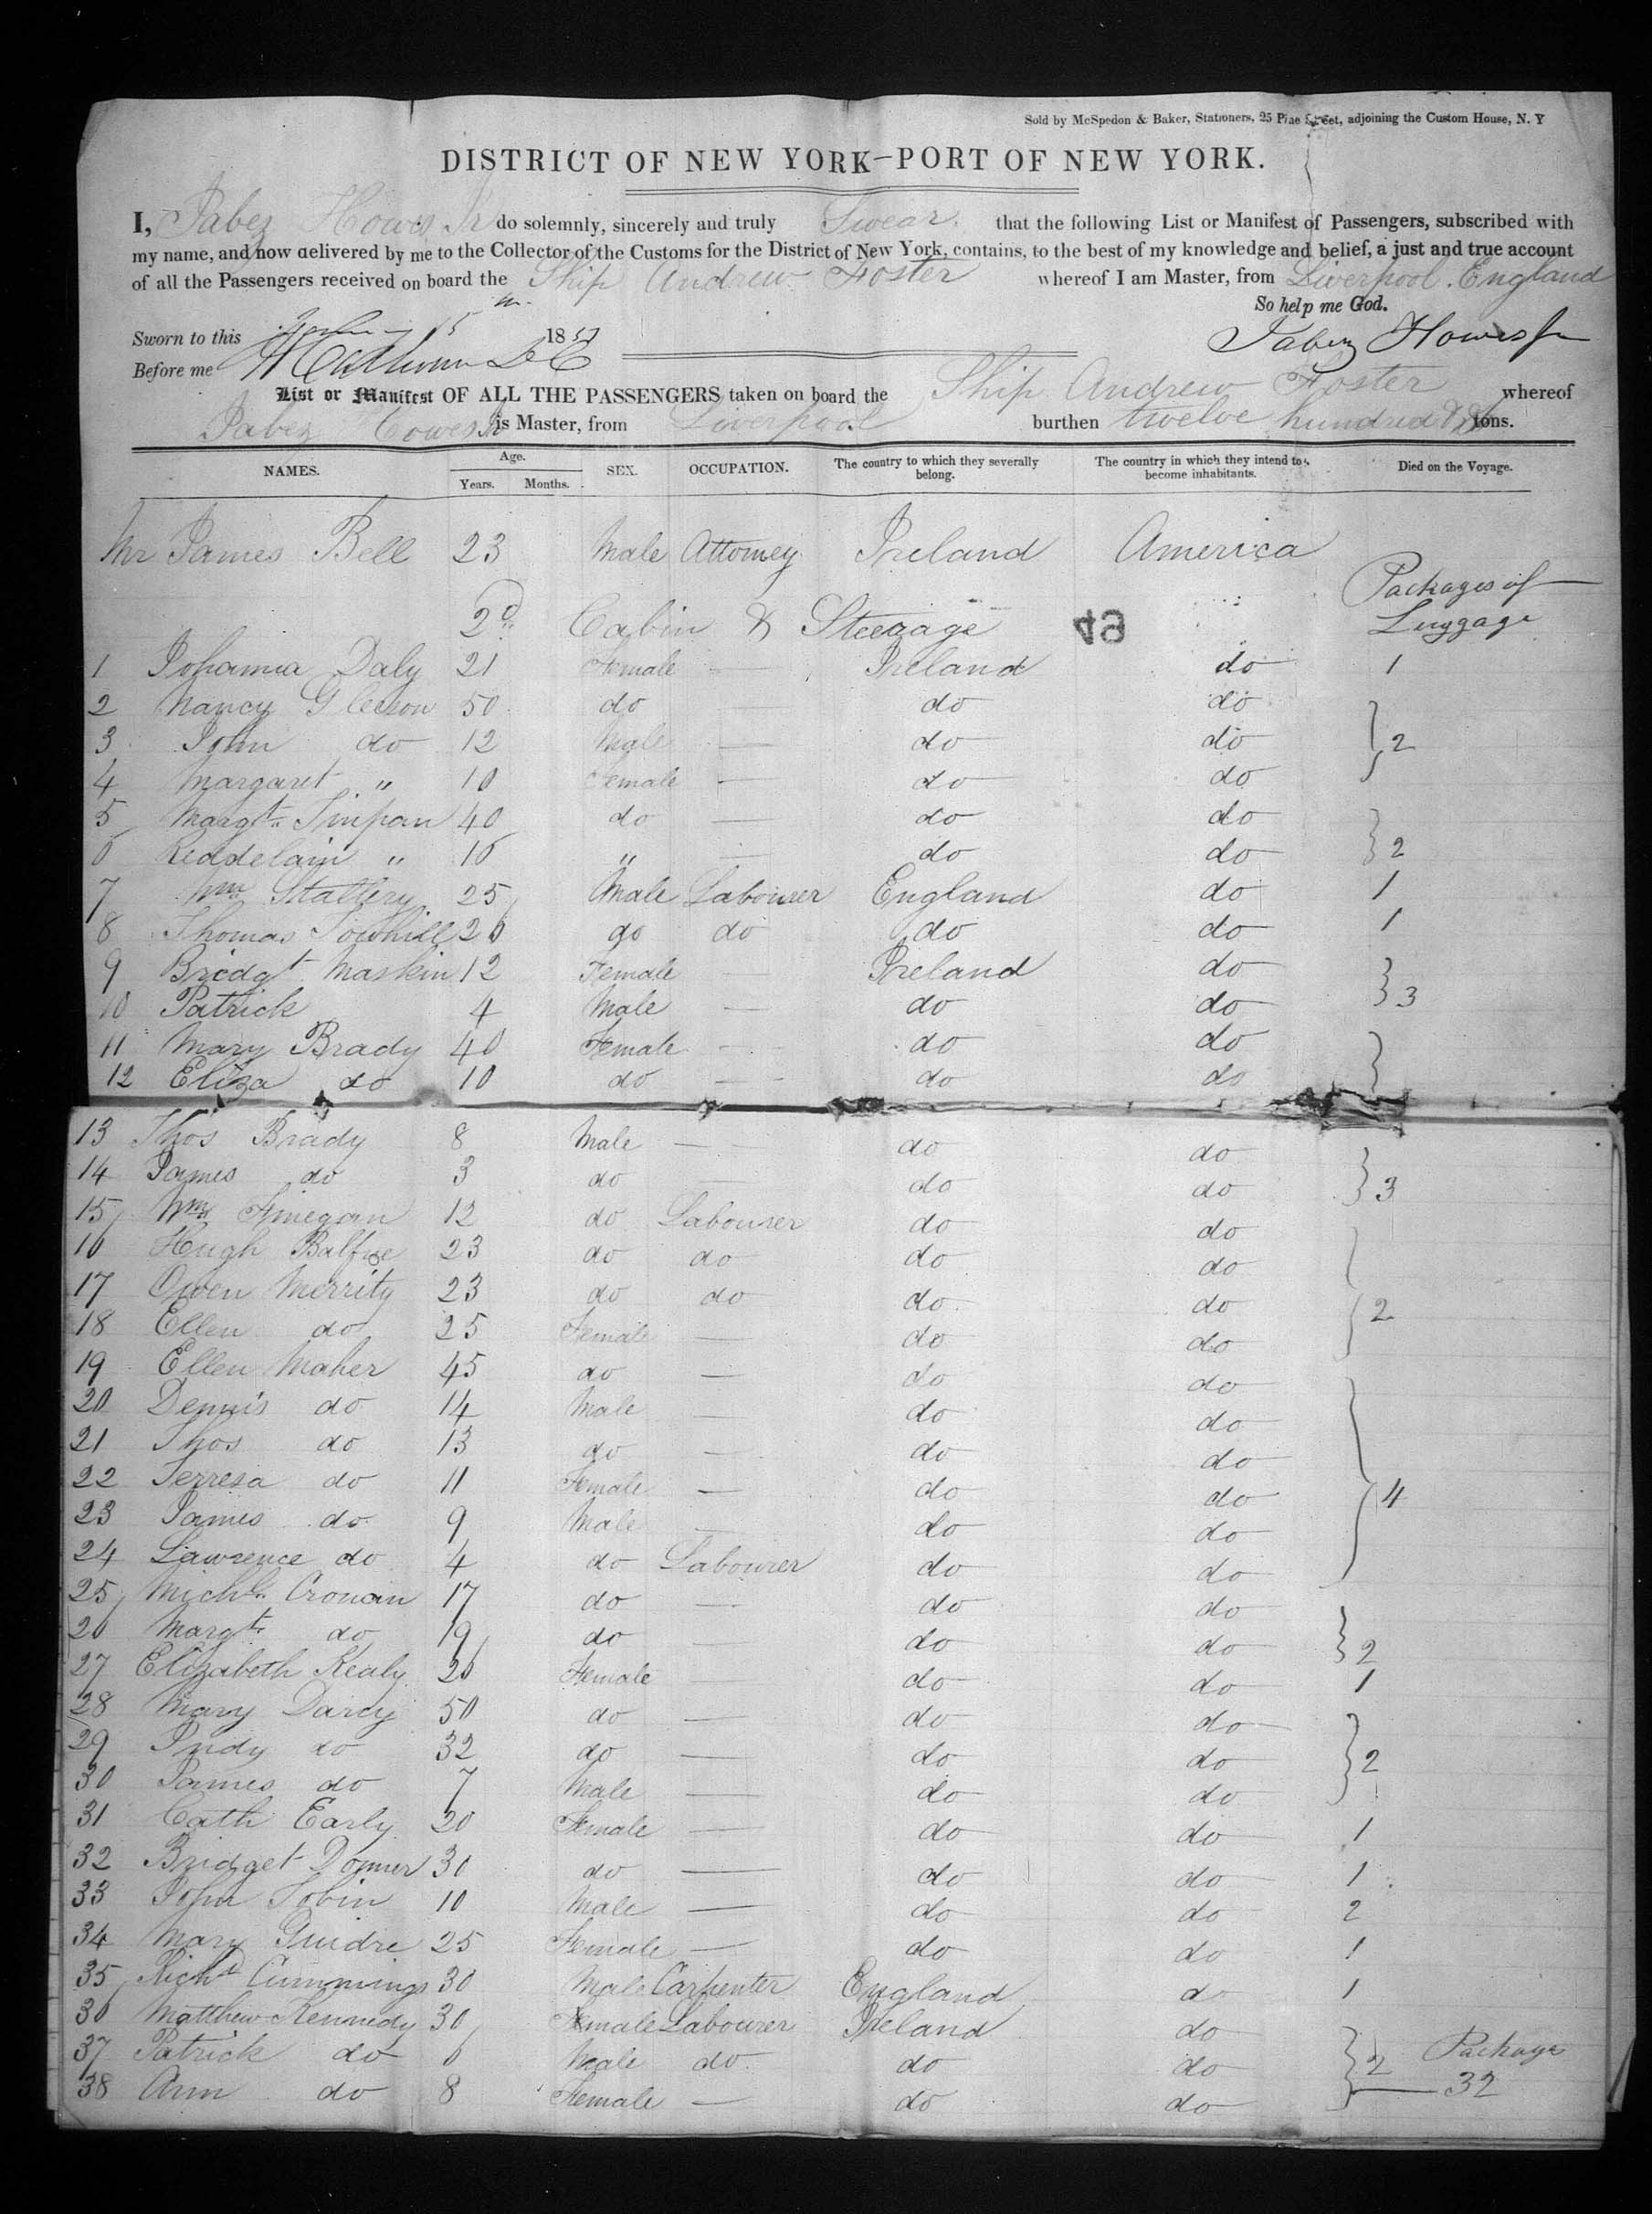 Sold by McSpedon & Baker, Stationers, 25 Pine Street, adjoining the Custom House, N. Y
DISTRICT OF NEW YORK—PORT OF NEW YORK.
I, Jabez Howes Jr do solemnly, sincerely and truly Swear that the following List or Manifest of Passengers, subscribed with
my name, and now delivered by me to the Collector of the Customs for the District of New York, contains, to the best of my knowledge and belief, a just and true account
of all the Passengers received on board the Ship Andrew Foster whereof I am Master, from Liverpool. England
So help me God.
Sworn to this 15 18
Jabez Howes Jr
Before me
List or Manifest OF ALL THE PASSENGERS taken on board the Ship Andrew Foster whereof
Jabez Howes Jr is Master, from Liverpool burthen twelve hundred tons.
NAMES. Age. Years. Months. SEX. OCCUPATION. The country to which they severally belong. The country in which they intend to become inhabitants. Died on the Voyage.
Mr James Bell 23 Male Attorney Ireland America
Packages of
2d Cabin & Steerage 49 Luggage
1 Johanna Daly 21 Female — Ireland do 1
2 Nancy Gleeson 50 do — do do
3 John do 12 Male — do do 2
4 Margaret " 10 Female — do do
5 Margt. 40 do — do do
6 " 16 " — do do 2
7 Wm Slattery 25 Male Labourer England do 1
8 Thomas Towhill 26 do do do do 1
9 Bridgt Maskin 12 Female — Ireland do
10 Patrick 4 Male — do do 3
11 Mary Brady 40 Female — do do
12 Eliza do 10 do — do do
13 Thos Brady 8 Male — do do
14 James do 3 do — do do 3
15 Wm Finegan 12 do Labourer do do
16 Hugh Balfge 23 do do do do
17 Owen Merrity 23 do do do do 2
18 Ellen do 25 Female — do do
19 Ellen Maher 45 do — do do
20 Dennis do 14 Male — do do
21 Thos do 13 do — do do
22 Terresa do 11 Female — do do 4
23 James do 9 Male — do do
24 Lawrence do 4 do Labourer do do
25 Michl. Cronan 17 do — do do
26 Margt. do 19 do — do do 2
27 Elizabeth Kealy 26 Female — do do 1
28 Mary Darcy 50 do — do do
29 Judy do 32 do — do do 2
30 James do 7 Male — do do
31 Cath Early 20 Female — do do 1
32 Bridget 30 do — do do 1
33 John Tobin 10 Male — do do 2
34 Mary Guidre 25 Female — do do 1
35 Richd Cummings 30 Male Carpenter England do 1
36 Matthew Kennedy 30 Female Labourer Ireland do
37 Patrick do 6 Male do do do 2 Package
38 Ann do 8 Female — do do 32